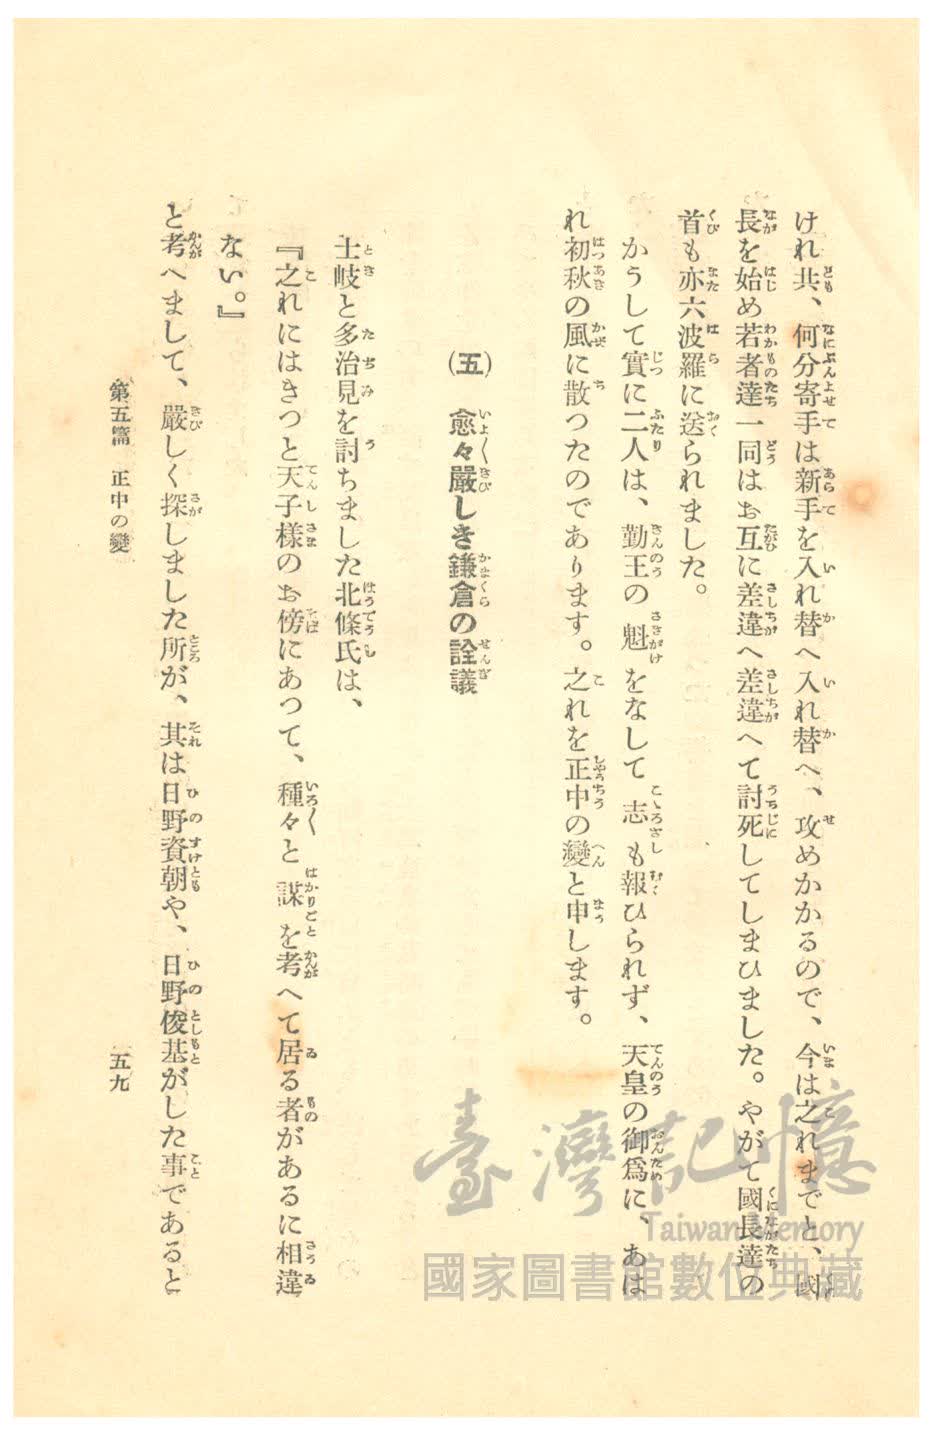 けれ共、何分寄手は新手を入れ替へ入れ替へ、攻めかかるので、今は之れまでと、國
長を始め若者達一同はお互に差違へ差違へて討死してしまひました。やがて國長達の
首も亦六波羅に送られました。
かうして實に二人は、勤王の魁をなして志も報ひられず、天皇の御爲に、あは
れ初秋の風に散つたのであります。之れを正中の變と申します。
(五) 愈々嚴しき鎌倉の詮議
土岐と多治見を討ちました北條氏は、
『之れにはきつと天子樣のお傍にあつて、種々と謀を考へて居る者があるに相違
ない。』
と考へまして、嚴しく探しました所が、其は日野資朝や、日野俊基がした事であると
第五篇 正中の變
五九
臺灣記憶
Taiwan Memory
國家圖書館數位典藏